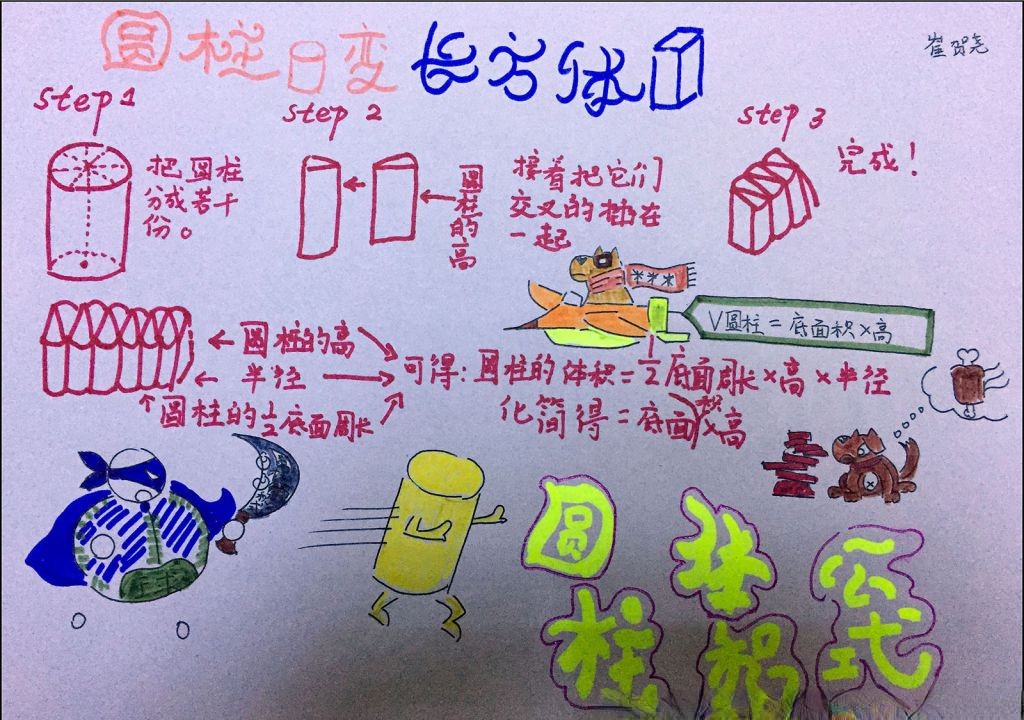 圆柱变长方体
崔贺尧
step 1
把圆柱
分成若干
份。
step 2
圆柱的高
接着把它们
交叉的插在
一起
step 3
完成！
V圆柱=底面积×高
圆柱的高
半径
圆柱的1/2底面周长
可得:圆柱的体积=1/2底面周长×高×半径
化简得=底面积×高
圆柱
体积
公式